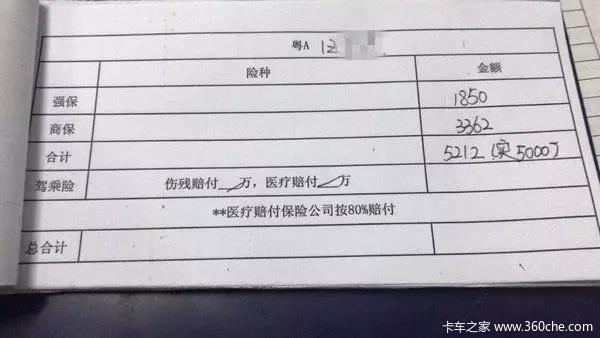 粤A 12
险种 金额
强保 1850
商保 3362
合计 5212 (实5000)
驾乘险 伤残赔付 万，医疗赔付 万
**医疗赔付保险公司按80%赔付
总合计
卡车之家 www.360che.com